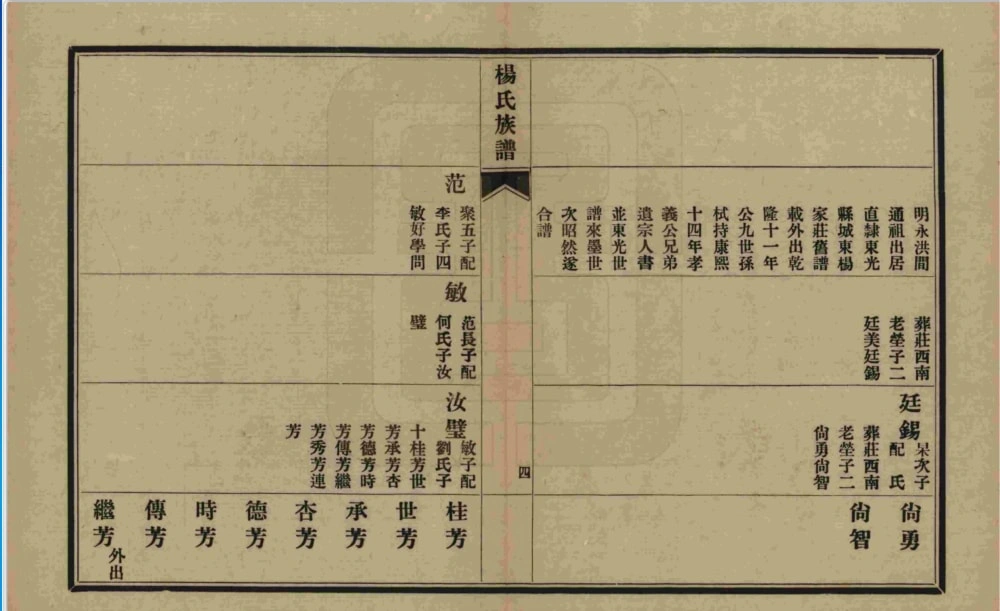 明永洪間
通祖出居
直隸東光
縣城東楊
家莊舊譜
載外出乾
隆十一年
公九世孫
栻持康熙
十四年孝
義公兄弟
遺宗人書
並東光世
譜來墨世
次昭然遂
合譜
葬莊西南
老塋子二
廷美廷錫
廷錫
杲次子
配 氏
葬莊西南
老塋子二
尙勇尙智
尙勇
尙智
楊氏族譜
四
范
聚五子配
李氏子四
敏好學問
敏
范長子配
何氏子汝
璧
汝璧
敏子配
劉氏子
十桂芳世
芳承芳杏
芳德芳時
芳傳芳繼
芳秀芳連
芳
桂芳
世芳
承芳
杏芳
德芳
時芳
傳芳
繼芳
外出